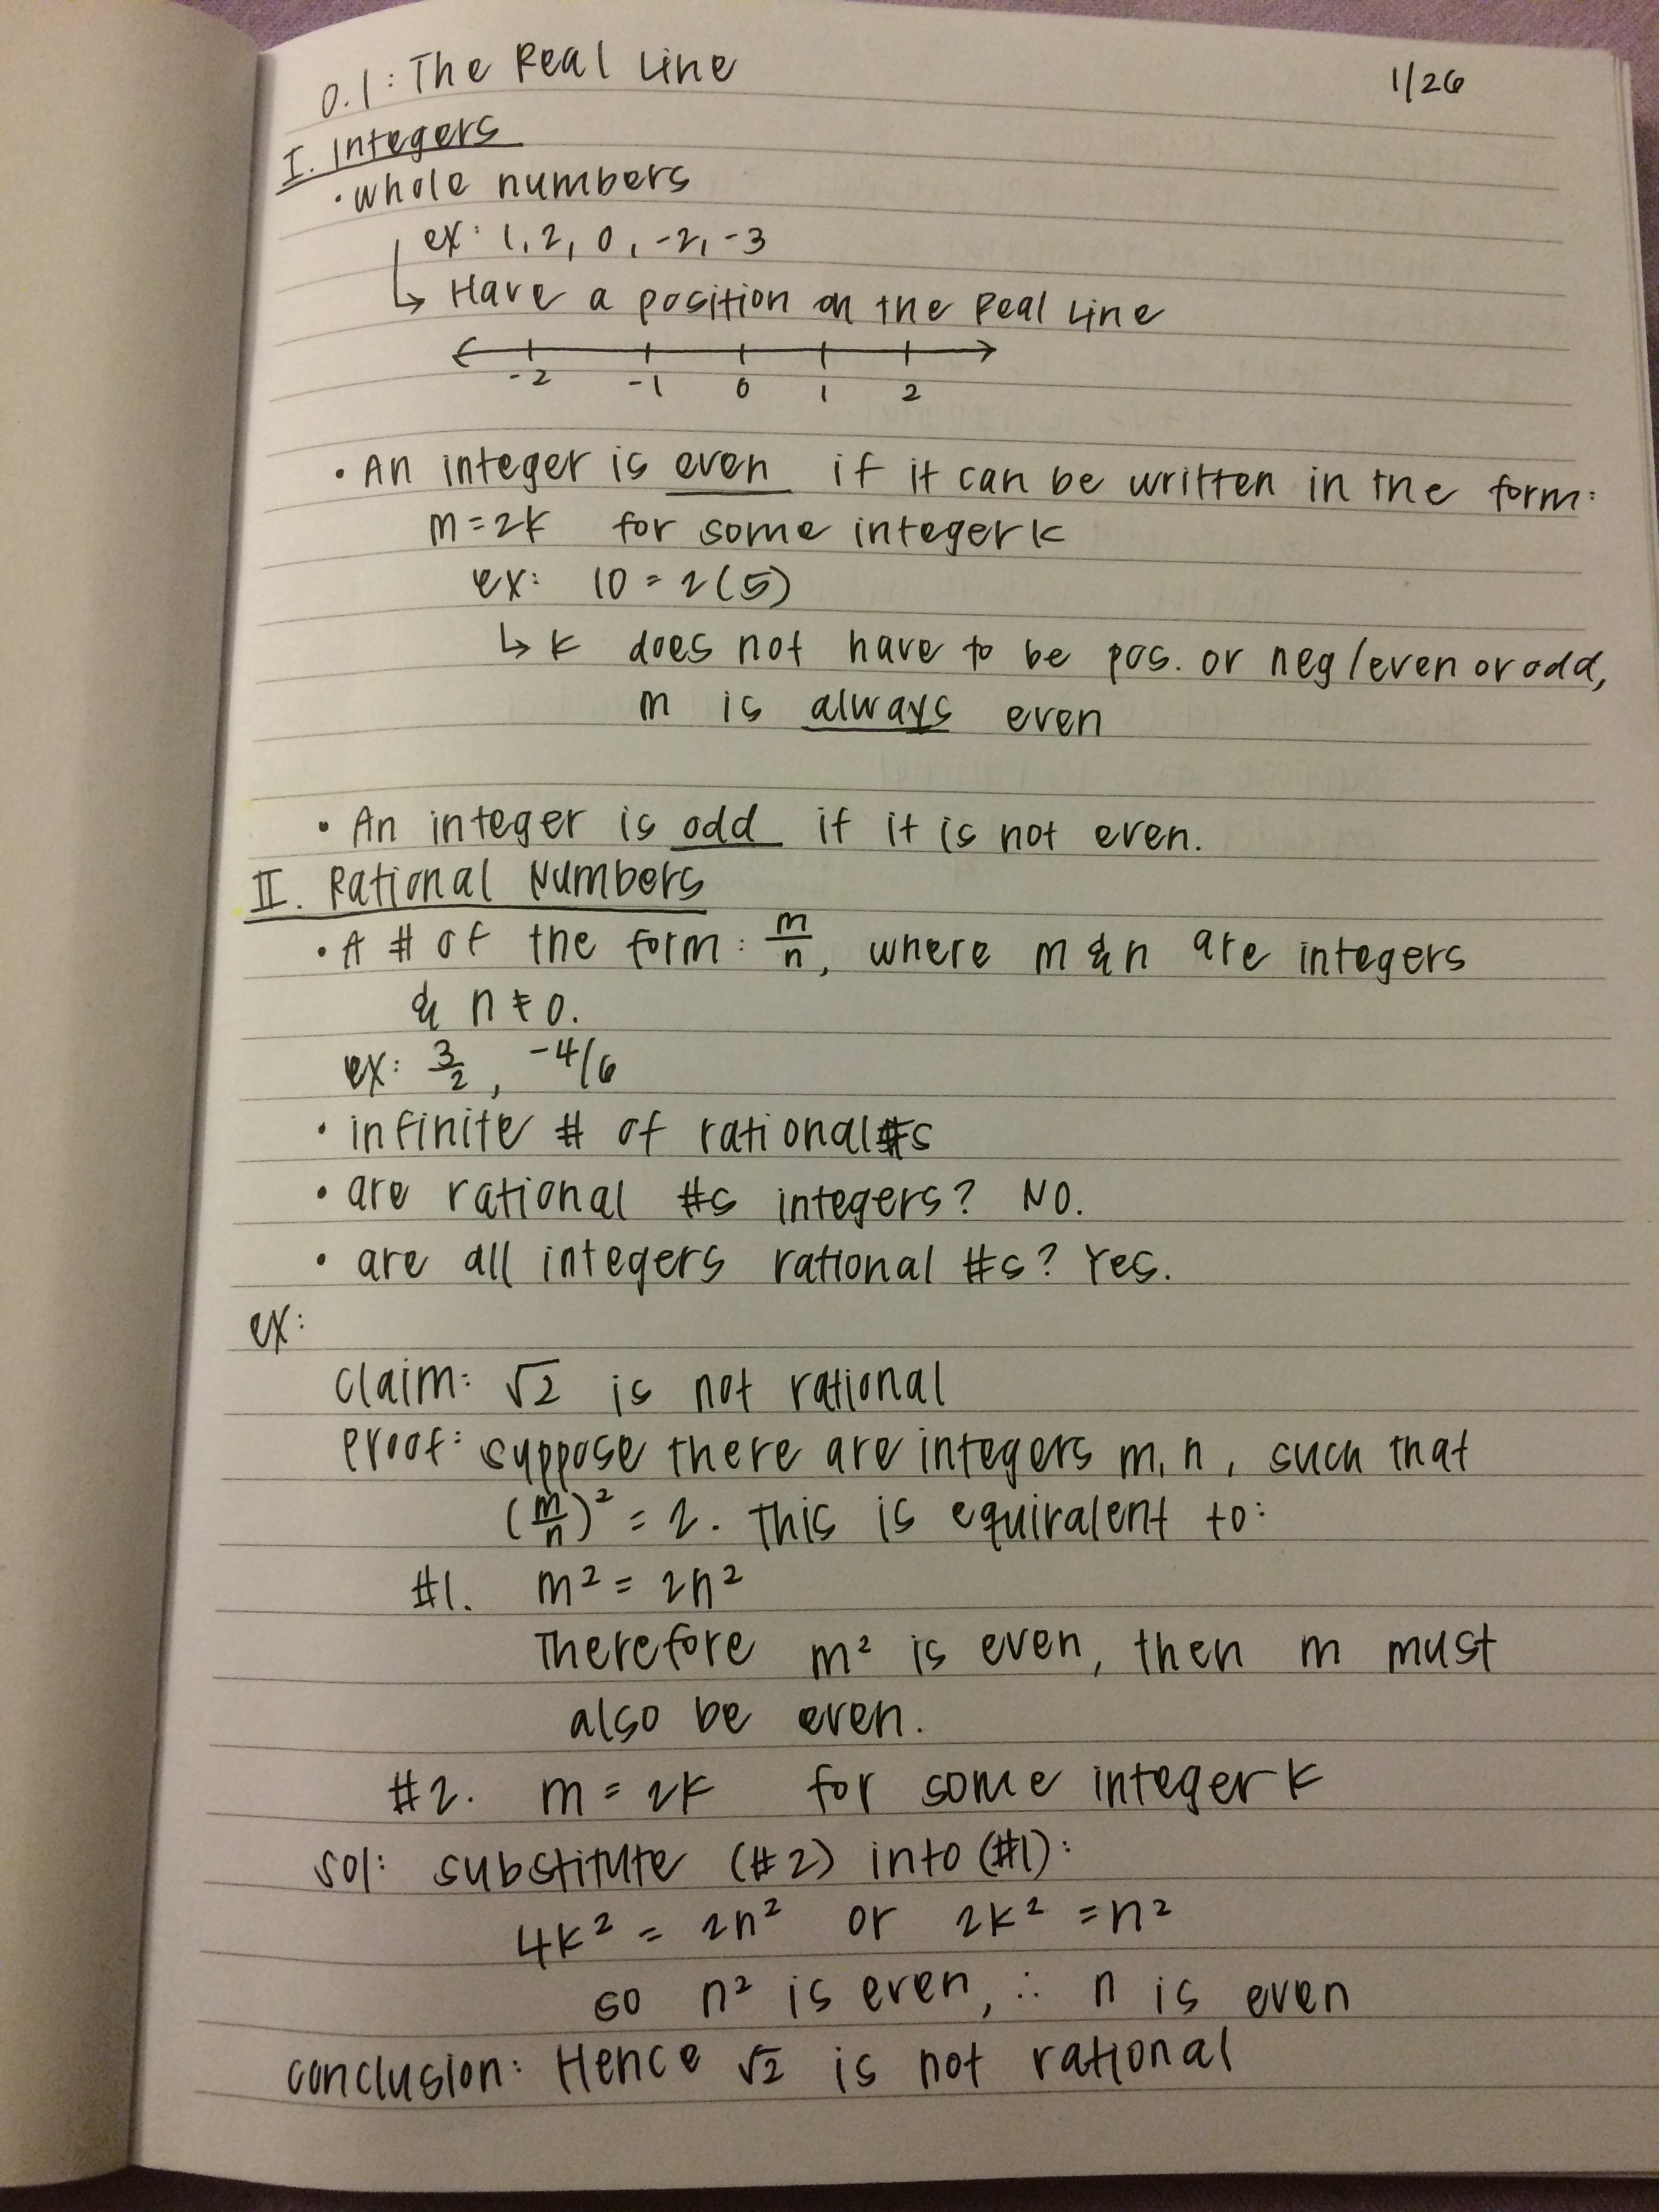 0.1: The Real Line
1/26
I. Integers
• whole numbers
ex: 1, 2, 0, -2, -3
↳ Have a position on the Real Line
-2 -1 0 1 2
• An integer is even if it can be written in the form:
m = 2k for some integer k
ex: 10 = 2(5)
↳ k does not have to be pos. or neg/even or odd,
m is always even
• An integer is odd if it is not even.
II. Rational Numbers
• A # of the form: m/n, where m & n are integers
& n ≠ 0.
ex: 3/2, -4/6
• infinite # of rational #s
• are rational #s integers? No.
• are all integers rational #s? Yes.
ex:
claim: √2 is not rational
Proof: suppose there are integers m, n, such that
(m/n)² = 2. This is equivalent to:
#1. m² = 2n²
Therefore m² is even, then m must
also be even.
#2. m = 2k for some integer k
Sol: substitute (#2) into (#1):
4k² = 2n² or 2k² = n²
so n² is even, ∴ n is even
conclusion: Hence √2 is not rational